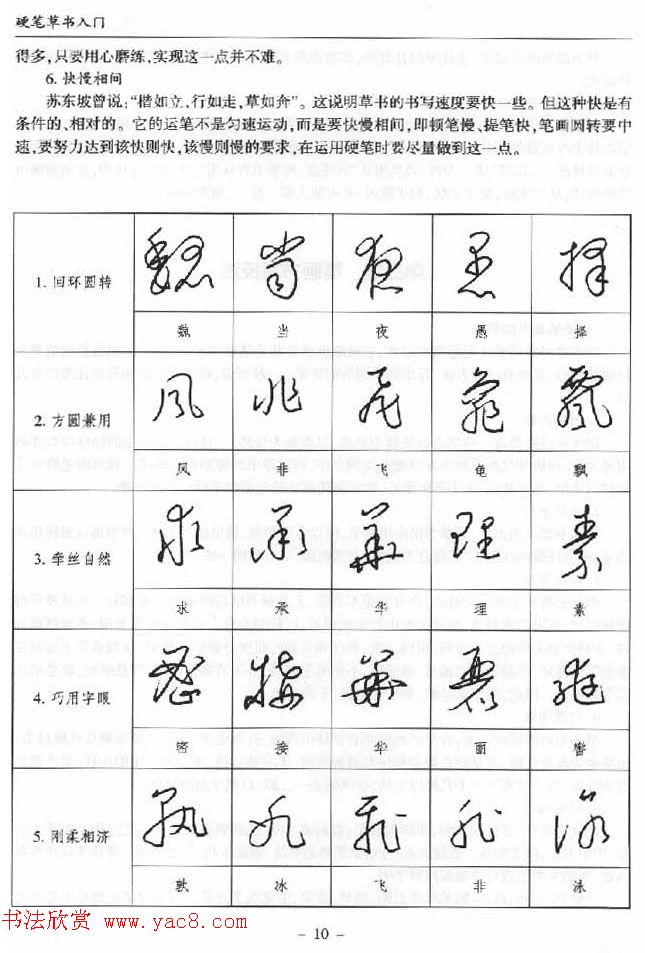 硬笔草书入门
得多,只要用心磨练,实现这一点并不难。
6. 快慢相间
苏东坡曾说:“楷如立,行如走,草如奔”。这说明草书的书写速度要快一些。但这种快是有
条件的、相对的。它的运笔不是匀速运动,而是要快慢相间,即顿笔慢、提笔快,笔画圆转要中
速,要努力达到该快则快,该慢则慢的要求,在运用硬笔时要尽量做到这一点。
1. 回环圆转
魏 当 夜 愚 择
2. 方圆兼用
凤 非 飞 龟 飘
3. 牵丝自然
求 承 华 理 素
4. 巧用字眼
密 接 华 丽
5. 刚柔相济
孰 冰 飞 非 泳
书法欣赏 www.yac8.com
- 10 -